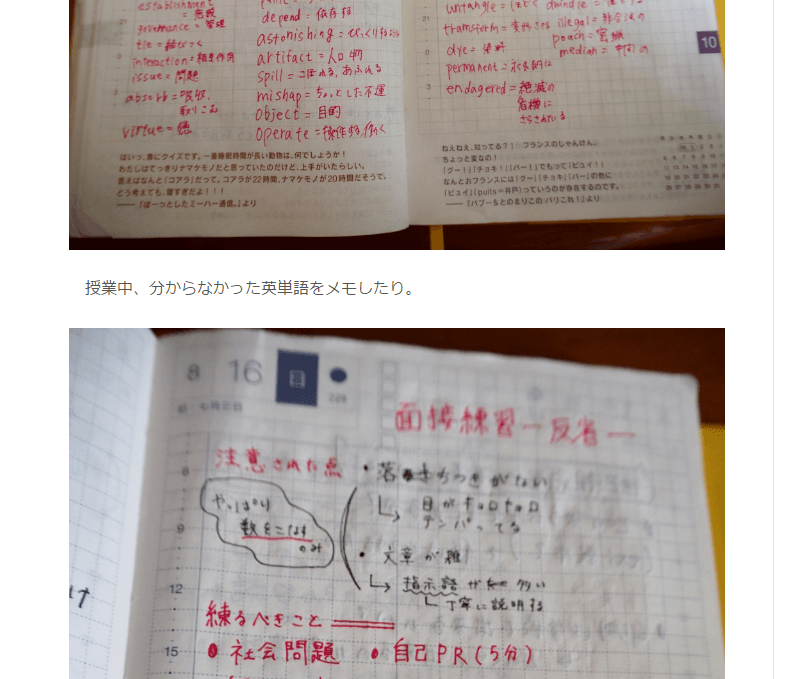 establishment
= 施設
governance = 管理
tie = 結びつく
interaction = 相互作用
issue = 問題
absorb = 吸収、
取りこむ
virtue = 徳
depend = 依存する
astonishing = びっくりする
artifact = 人口物
spill = こぼれる、あふれる
mishap = ちょっとした不運
object = 目的
operate = 操作する、働く
はいっ、急にクイズです。一番睡眠時間が長い動物は、何でしょうか！
わたしはてっきりナマケモノだと思っていたのだけど、上手がいたらしい。
答えはなんと「コアラ」だって。コアラが22時間、ナマケモノが20時間だそうで。
どう考えても、寝すぎだよ！！！
――『ぼーっとしたミーハー通信。』より
untangle = ほどく
dwindle =
21
transform = 変形させる
illegal = 非合法の
poach = 密猟
dye = 染料
median = 中間の
permanent = 永久的に
endagered = 絶滅の
危機に
さらされている
10
ねえねえ、知ってる？！ フランスのじゃんけん。
ちょっと変なの！
「グー！」「チョキ！」「パー！」でもって「ピュイ！」
なんとおフランスには「グー」「チョキ」「パー」の他に
「ピュイ」（puits＝井戸）っていうのが存在するのです。
――『バブー&とのまりこの パリこれ！』より
授業中、分からなかった英単語をメモしたり。
8 16 日
228
面接練習 ー反省ー
注意された点
・落ちつきがない
目がキョロキョロ
テンパってる
やっぱり
数をこなす
のみ
・文章が雑
指示語が 多い
丁寧に説明する
6
9
12
15
練るべきこと
・社会問題 ・自己PR(5分)